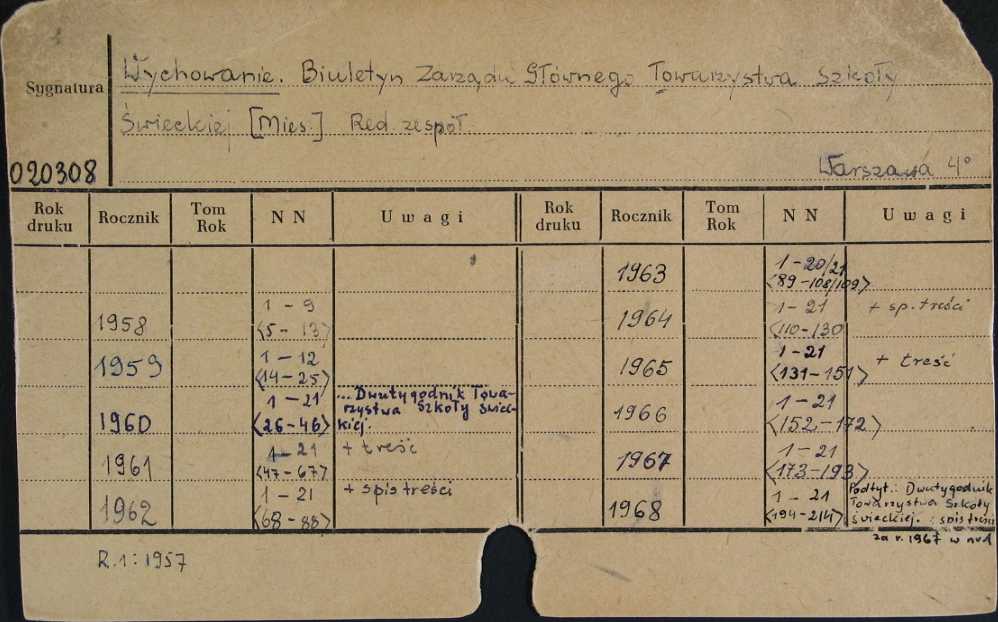 Sygnatura
020308
Wychowanie. Biuletyn Zarządu Głównego Towarzystwa Szkoły
Świeckiej [Mies.] Red. zespół.
Warszawa 4°
Rok druku Rocznik Tom Rok NN Uwagi
1958 1-9 <5-13>
1959 1-12 <14-25>
1960 1-21 <26-46> ... Dwutygodnik Towa-
rzystwa Szkoły Świec-
kiej.
1961 1-21 <47-67> + treść
1962 1-21 <68-88> + spis treści
Rok druku Rocznik Tom Rok NN Uwagi
1963 1-20/21 <89-108/109>
1964 1-21 <110-130 + sp. treści
1965 1-21 <131-151> + treść
1966 1-21 <152-172>
1967 1-21 <173-193>
1968 1-21 <194-214> Podtyt.: Dwutygodnik
Towarzystwa Szkoły
Świeckiej. : spis treści
za r. 1967 w nr 1
R.1:1957